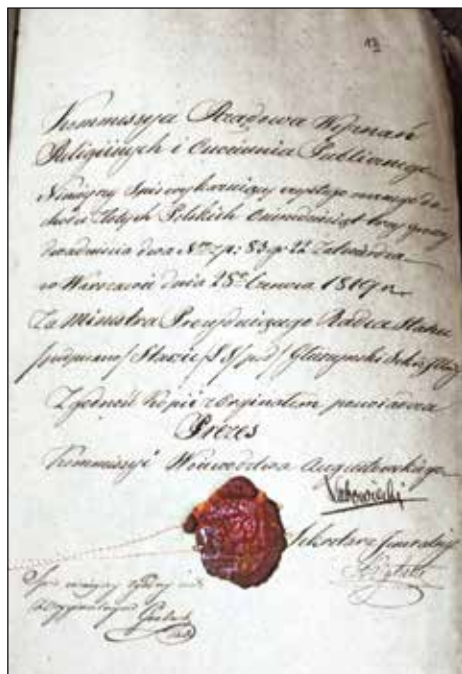 13
Kommissyja Rządowa Wyznań
Religijnych i Oświecenia Publicznego
Niniejszy Spis wykazujący czystego rocznego do-
chodu Złotych Polskich Osiemdziesiąt trzy groszy
dwadzieścia dwa Nro zp: 83 gr 22 Zatwierdza
w Warszawie dnia 28 Czerwca 1819 r.
Za Ministra Prezydującego Radca Stanu
/podpisano/ Staszic /LS/ /
Zgodność kopii z Orginałem poświadcza
Prezes
Kommissyi Woiewództwa Augustowskiego
Sekretarz Jeneralny